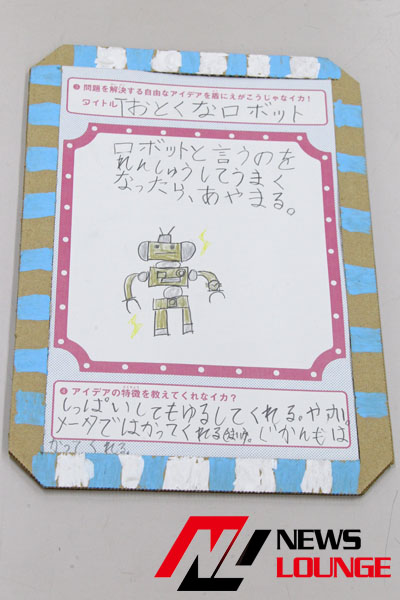 ③問題を解決する自由なアイデアを盾にえがこうじゃなイカ!
タイトル「おとくなロボット
ロボットと言うのを
れんしゅうしてうまく
なったら、あやまる。
④アイデアの特徴を教えてくれなイカ?
とくちょう
しっぱいしてもゆるしてくれる。やホ。
メータではかってくれる
じかんもは
かってくれる。
NEWS
LOUNGE